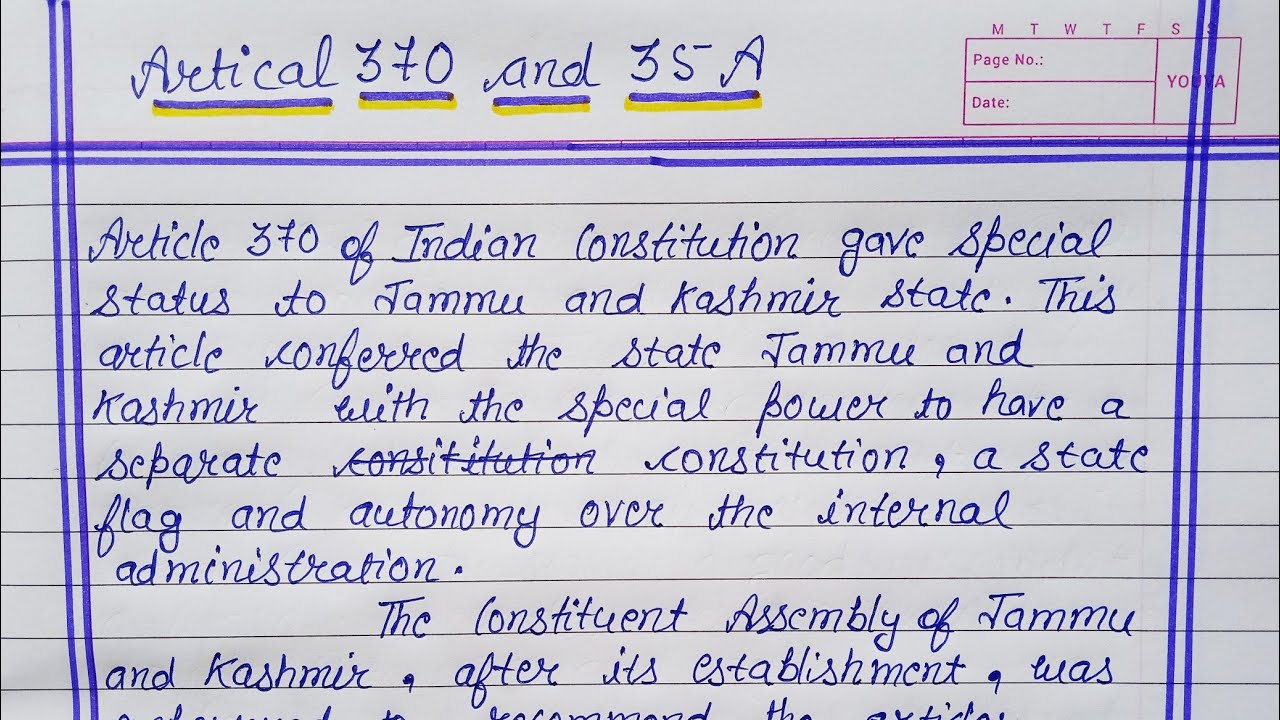 M T W T F S S
Artical 370 and 35-A
Page No.:
YOUVA
Date:
Article 370 of Indian Constitution gave special
status to Jammu and Kashmir state. This
article conferred the state Jammu and
Kashmir with the special power to have a
separate consititution constitution, a state
flag and autonomy over the internal
administration.
The Constituent Assembly of Jammu
and Kashmir, after its establishment, was
to recommend the articles